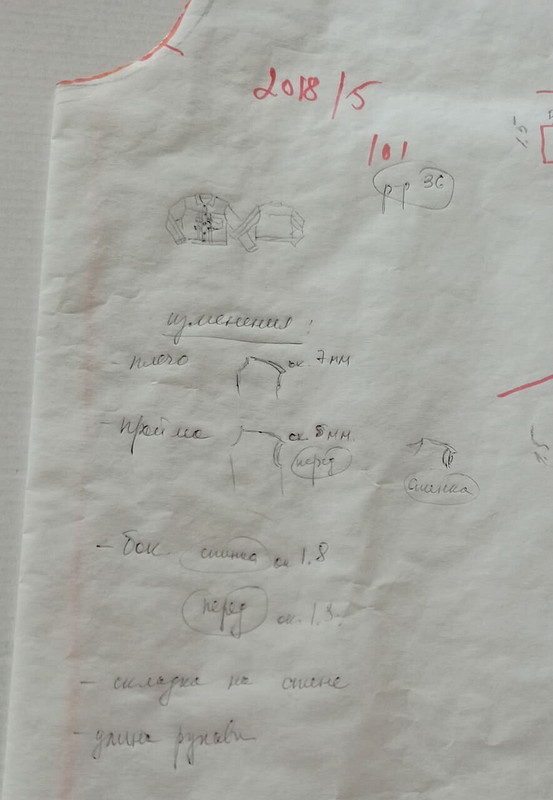 2018/5
101
р-р 36
изменения:
- плечо ок. 7 мм
- пройма ок. 8 мм
перед
спинка
- бок спинка ок 1.8
перед ок. 1.3.
- складка на спине
- длина рукава
1.5